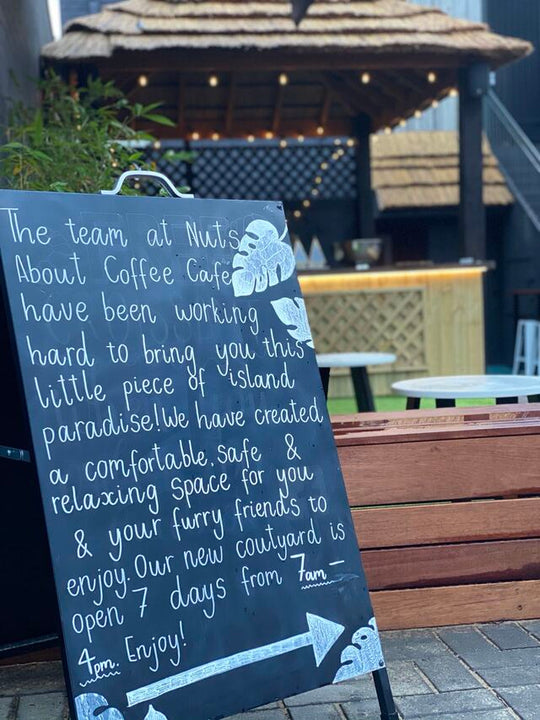 The team at Nuts
About Coffee Cafe
have been working
hard to bring you this
little piece of island
paradise! We have created
a comfortable, safe &
relaxing space for you
& your furry friends to
enjoy. Our new coutyard is
open 7 days from 7am -
4pm. Enjoy!